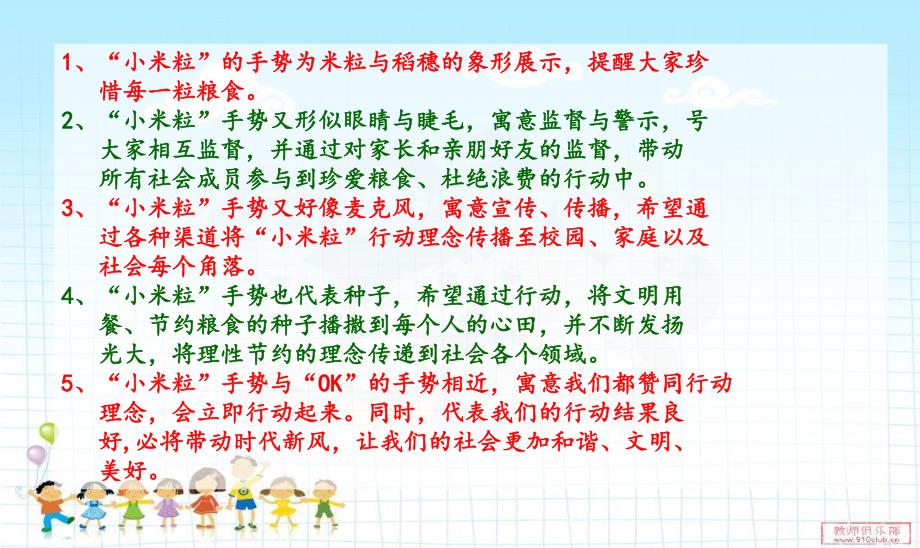 1、“小米粒”的手势为米粒与稻穗的象形展示，提醒大家珍
惜每一粒粮食。
2、“小米粒”手势又形似眼睛与睫毛，寓意监督与警示，号
大家相互监督，并通过对家长和亲朋好友的监督，带动
所有社会成员参与到珍爱粮食、杜绝浪费的行动中。
3、“小米粒”手势又好像麦克风，寓意宣传、传播，希望通
过各种渠道将“小米粒”行动理念传播至校园、家庭以及
社会每个角落。
4、“小米粒”手势也代表种子，希望通过行动，将文明用
餐、节约粮食的种子播撒到每个人的心田，并不断发扬
光大，将理性节约的理念传递到社会各个领域。
5、“小米粒”手势与“OK”的手势相近，寓意我们都赞同行动
理念，会立即行动起来。同时，代表我们的行动结果良
好,必将带动时代新风，让我们的社会更加和谐、文明、
美好。
教师俱乐部
www.910club.cn